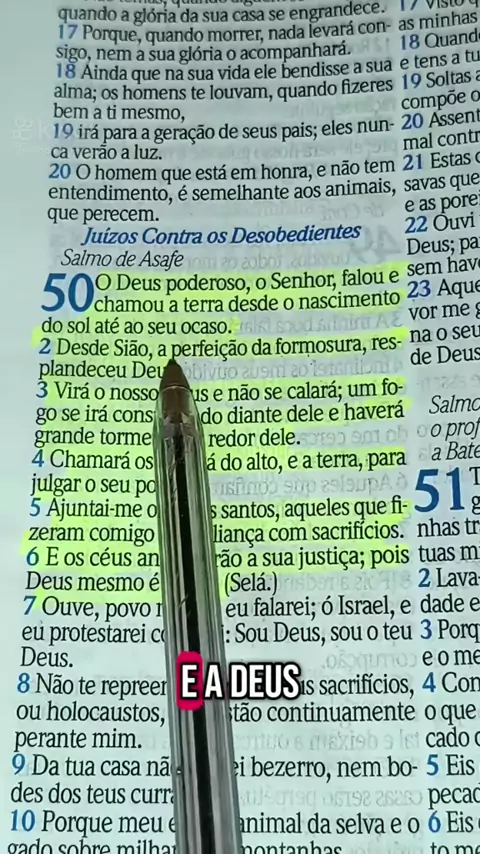 quando a glória da sua casa se engrandece.
17 Porque, quando morrer, nada levará con-
sigo, nem a sua glória o acompanhará.
18 Ainda que na sua vida ele bendisse a sua
alma; os homens te louvam, quando fizeres
bem a ti mesmo,
19 irá para a geração de seus pais; eles nun-
ca verão a luz.
20 O homem que está em honra, e não tem
entendimento, é semelhante aos animais,
que perecem.
Juízos Contra os Desobedientes
Salmo de Asafe
50 O Deus poderoso, o Senhor, falou e
chamou a terra desde o nascimento
do sol até ao seu ocaso.
2 Desde Sião, a perfeição da formosura, res-
plandeceu Deu
3 Virá o nosso us e não se calará; um fo-
go se irá cons do diante dele e haverá
grande torme redor dele.
4 Chamará os á do alto, e a terra, para
julgar o seu po
5 Ajuntai-me o s santos, aqueles que fi-
zeram comigo liança com sacrifícios.
6 E os céus an rão a sua justiça; pois
Deus mesmo é (Selá.)
7 Ouve, povo eu falarei; ó Israel, e
eu protestarei c i: Sou Deus, sou o teu
Deus.
8 Não te repreen s sacrifícios,
ou holocaustos, stão continuamente
perante mim.
9 Da tua casa nã ei bezerro, nem bo-
des dos teus curr
10 Porque meu é animal da selva e o
gado sobre milha montanhas.
E A DEUS
17 Visto q
as minhas
18 Quand
e tens a tu
19 Soltas a
compõe o
20 Assent
mal contr
21 Estas c
savas que
e as porei
22 Ouvi
Deus; pa
sem have
23 Aque
vor me g
na o seu
de Deus
Salmo
o prof
a Bate
51 T
nhas tr
tuas m
2 Lava-
dade e
3 Porq
e o me
4 Con
o que
cado c
5 Eis
pecad
6 Eis
to m